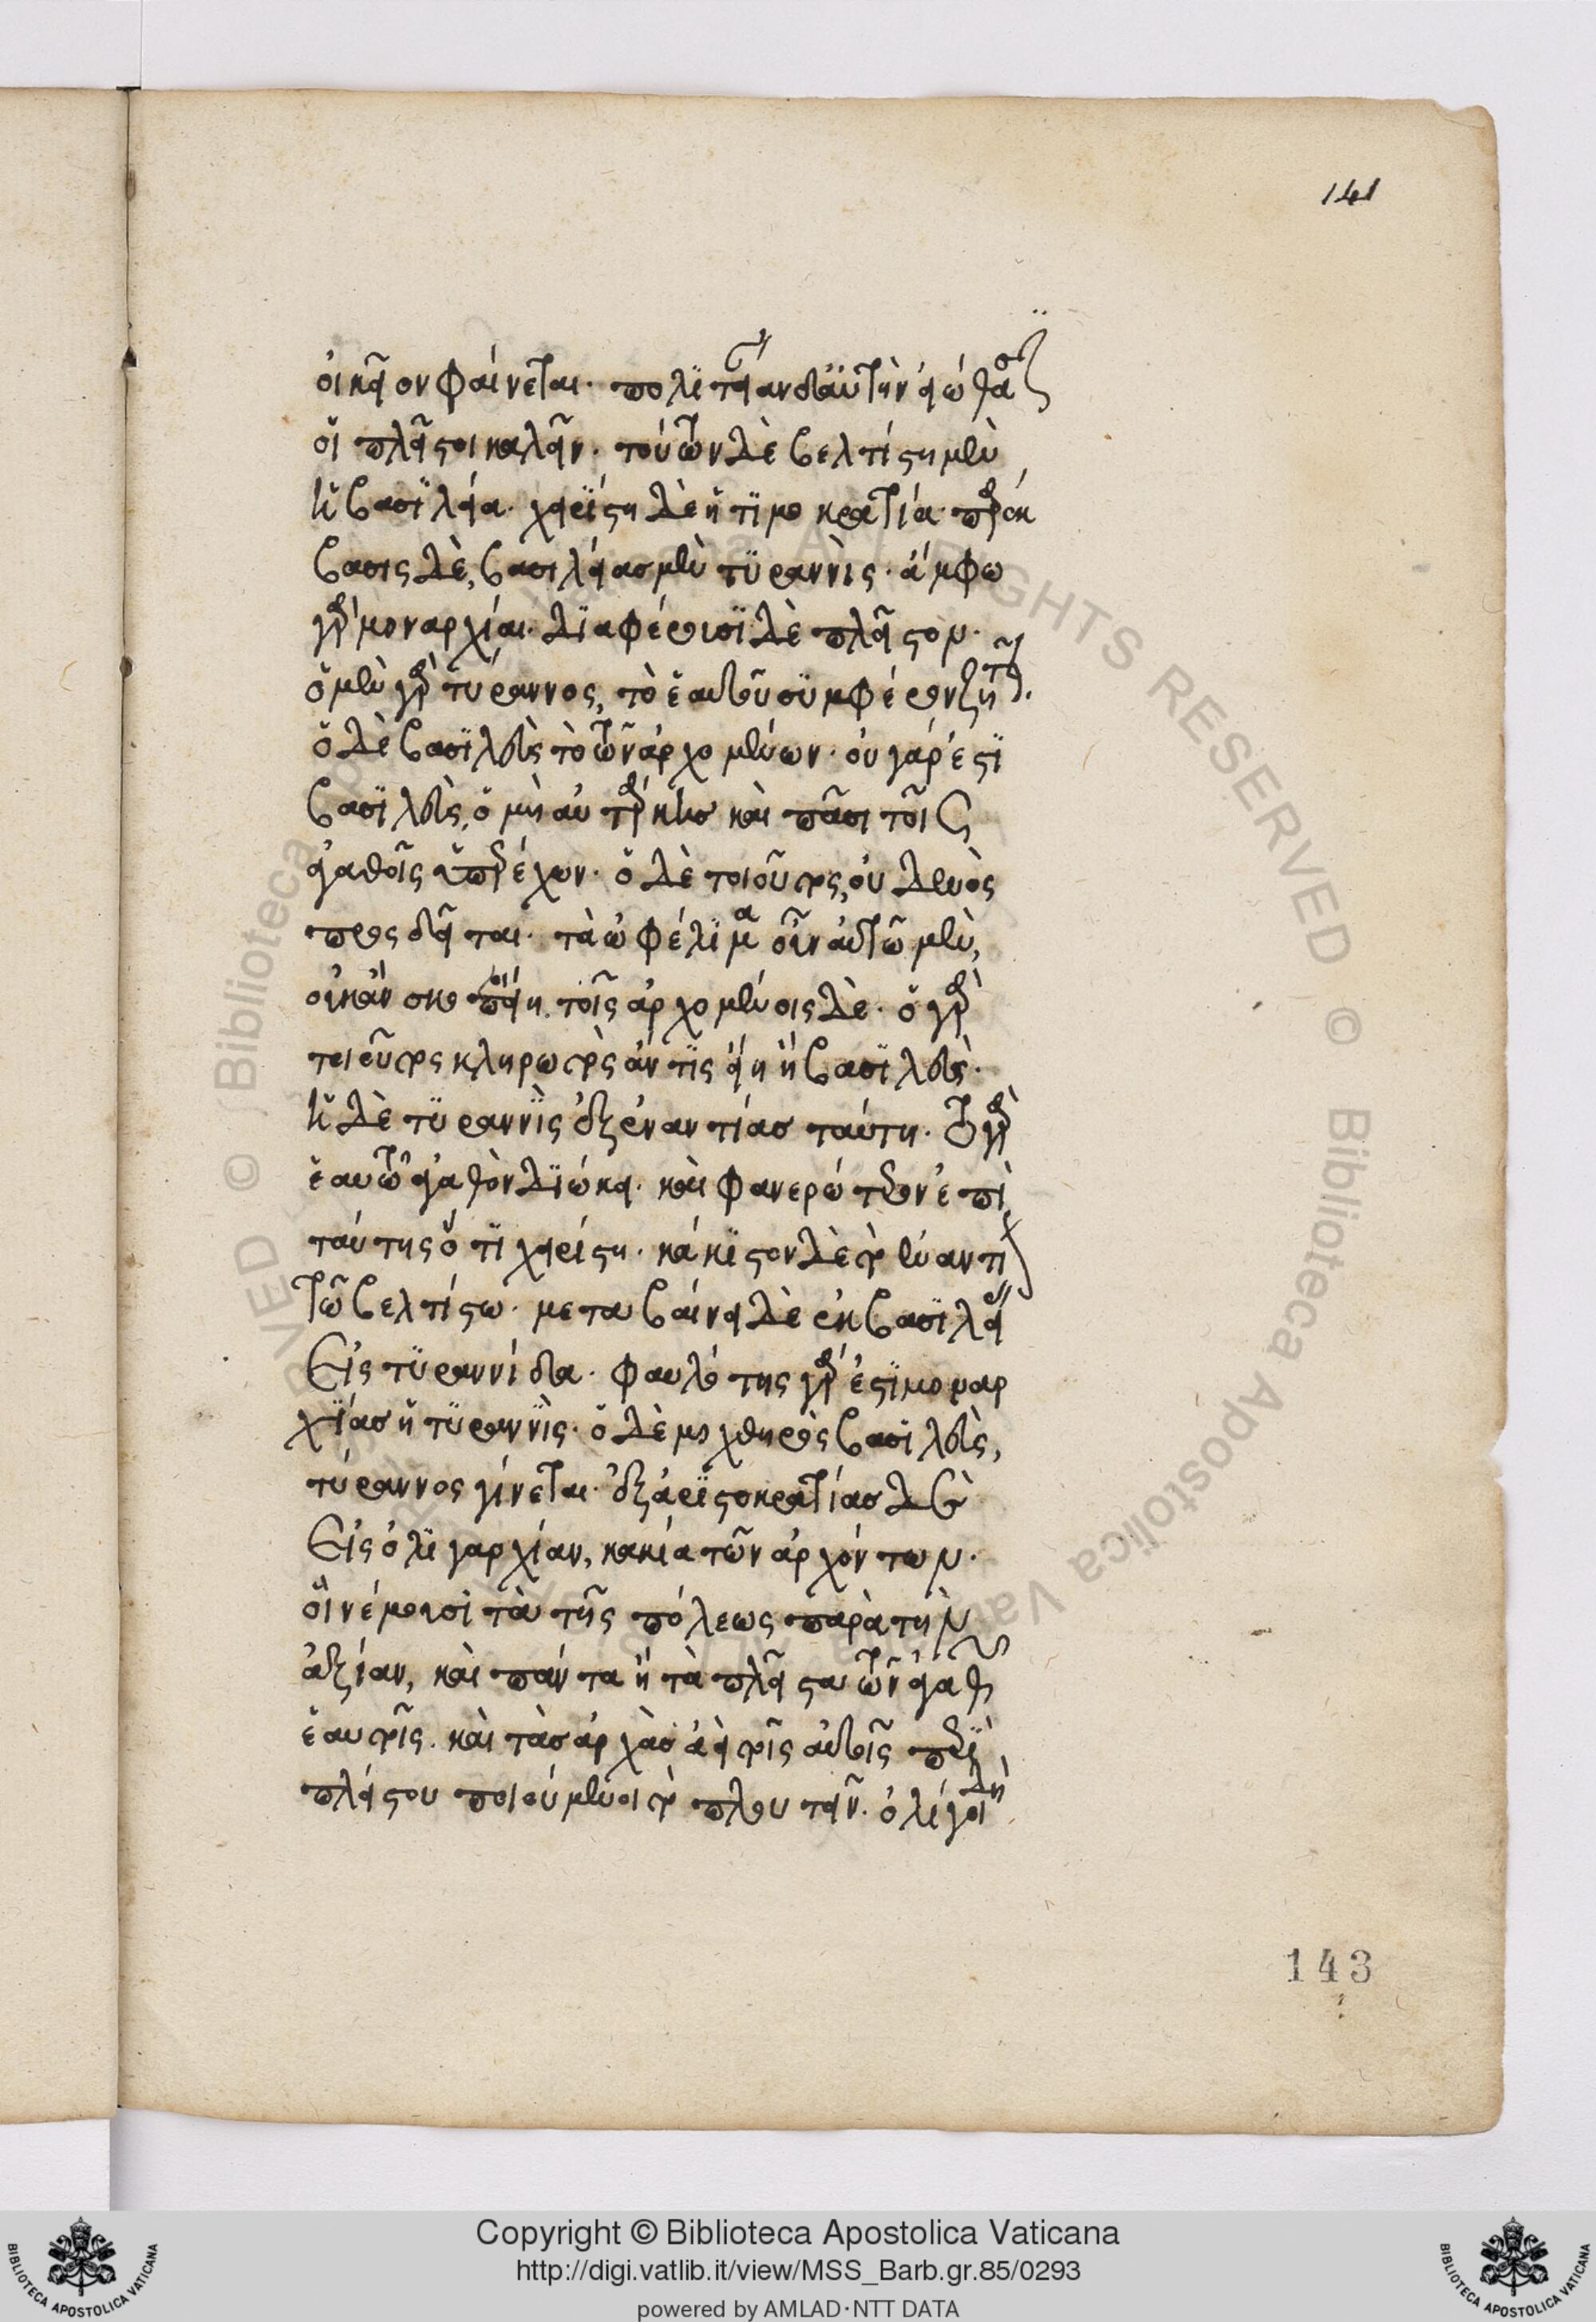 141
οἰκεῖον φαίνεται· πολιτείαν δ' αὐτὴν εἰώθασιν
οἱ πλεῖστοι καλεῖν· τούτων δὲ βελτίστη μὲν
ἡ βασιλεία· χειρίστη δὲ ἡ τιμοκρατία· παρέκ
βασις δὲ, βασιλείας μὲν τυραννὶς· ἄμφω
γὰρ μοναρχίαι· διαφέρουσι δὲ πλεῖστον·
ὁ μὲν γὰρ τύραννος, τὸ ἑαυτοῦ συμφέρον ζητεῖ·
ὁ δὲ βασιλεὺς τὸ τῶν ἀρχομένων· οὐ γάρ ἐστι
βασιλεὺς, ὁ μὴ αὐτάρκης καὶ πᾶσι τοῖς
ἀγαθοῖς ὑπερέχων· ὁ δὲ τοιοῦτος, οὐδενὸς
προσδεῖται· τὰ ὠφέλιμα οὖν αὑτῶ μὲν,
οὐκ ἂν σκοποίη τοῖς ἀρχομένοις δὲ· ὁ γὰρ
τοιοῦτος κληρωτὸς ἄν τις εἴη ἢ βασιλεὺς·
ἡ δὲ τυραννὶς ἐξ ἐναντίας ταύτη· τὸ γὰρ
ἑαυτῶ ἀγαθὸν διώκει· καὶ φανερώτερον ἐπὶ
ταύτης ὅτι χειρίστη· κάκιστον δὲ τὸ ἐναντίον
τῶ βελτίστω· μεταβαίνει δὲ ἐκ βασιλείας
Εἰς τυραννίδα· φαυλότης γάρ ἐστι μοναρ
χίας ἡ τυραννὶς· ὁ δὲ μοχθηρὸς βασιλεὺς,
τύραννος γίνεται· ἐξ ἀριστοκρατίας δὲ
Εἰς ὀλιγαρχίαν, κακία τῶν ἀρχόντων·
οἳ νέμουσι τὰ τῆς πόλεως παρὰ τὴν
ἀξίαν, καὶ πάντα ἢ τὰ πλεῖστα τῶν ἀγαθῶν
ἑαυτοῖς· καὶ τὰς ἀρχὰς ἀεὶ τοῖς αὐτοῖς περὶ
πλείστου ποιούμενοι τὸ πλουτεῖν· ὀλίγοι δὴ
143
Copyright © Biblioteca Apostolica Vaticana
http://digi.vatlib.it/view/MSS_Barb.gr.85/0293
powered by AMLAD·NTT DATA